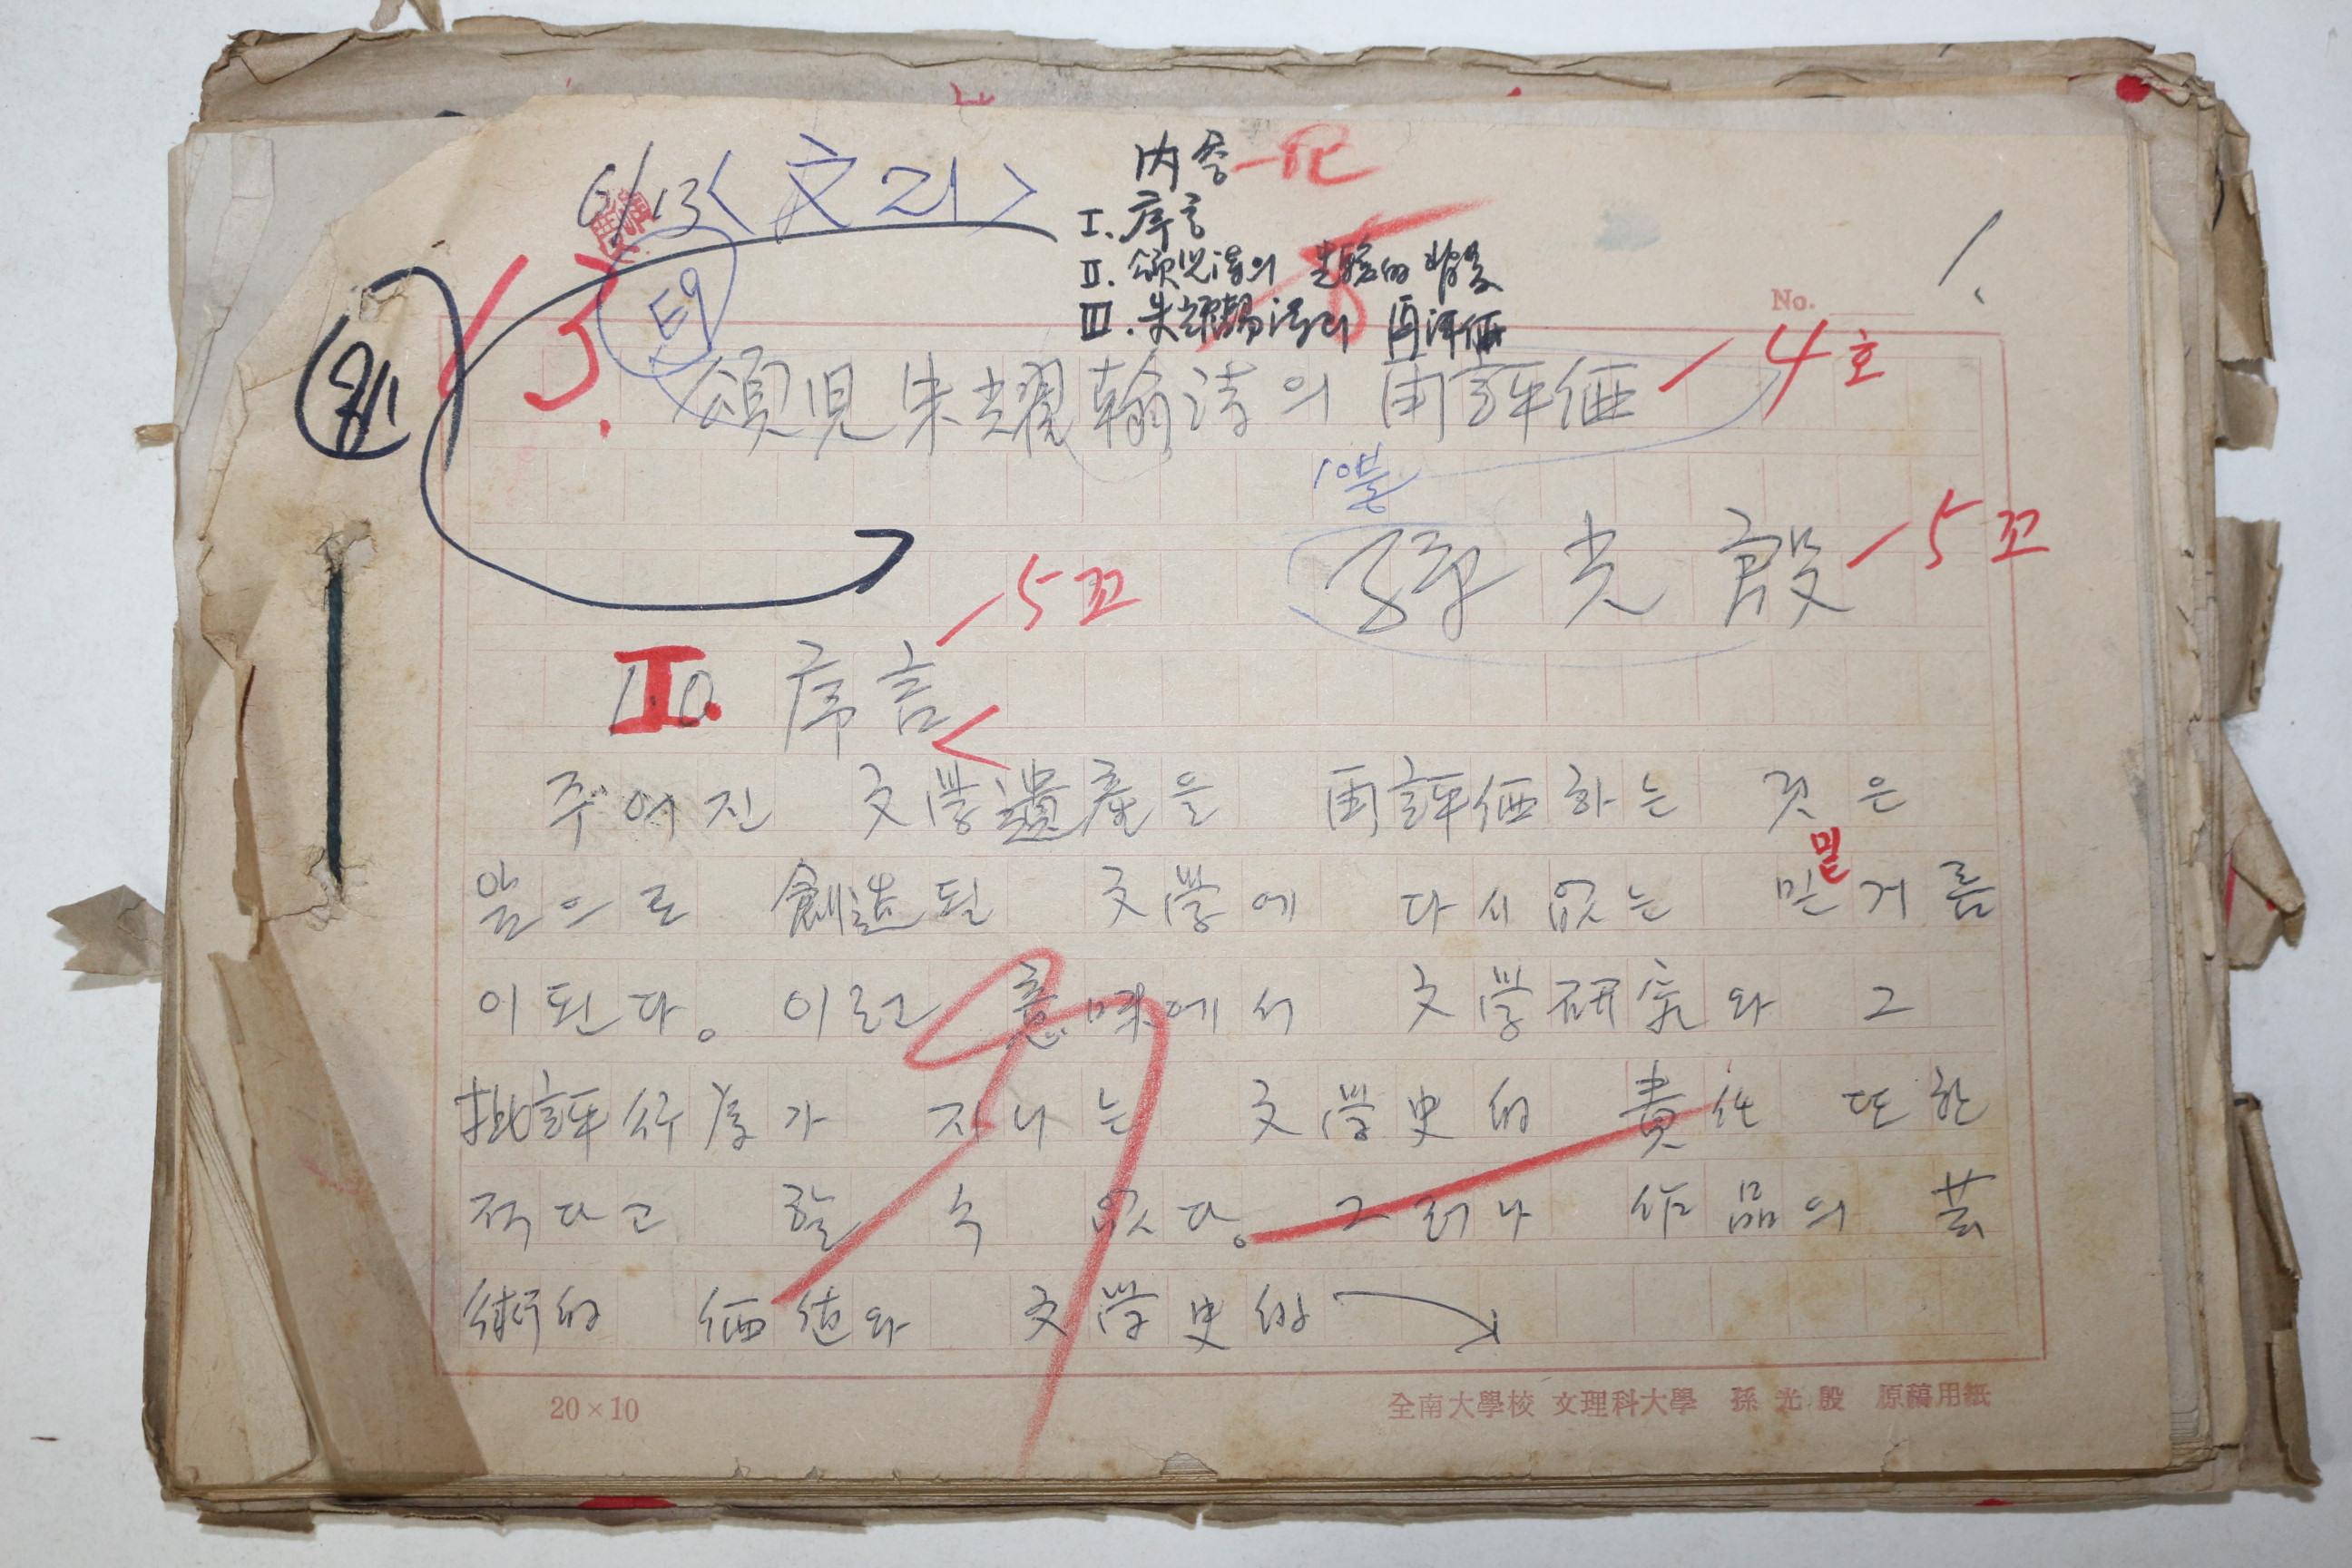 6/13 <文리>
内容
I. 序言
II. 頌兒詩의 先驗的 背景
III. 朱耀翰詩의 再評価
1.
E9
No.
頌児 朱耀翰 詩의 再評価
4호
10부
孫光殷
5꼬
5꼬
I. 序言
주어진 文學遺産을 再評価하는 것은
밑
앞으로 創造될 文學에 다시없는 믿거름
이된다。 이런 意味에서 文學硏究와 그
批評行爲가 지니는 文學史的 責任 또한
적다고 할 수 없다。 그러나 作品의 芸
術的 価値와 文學史的
20×10
全南大學校 文理科大學 孫光殷 原稿用紙